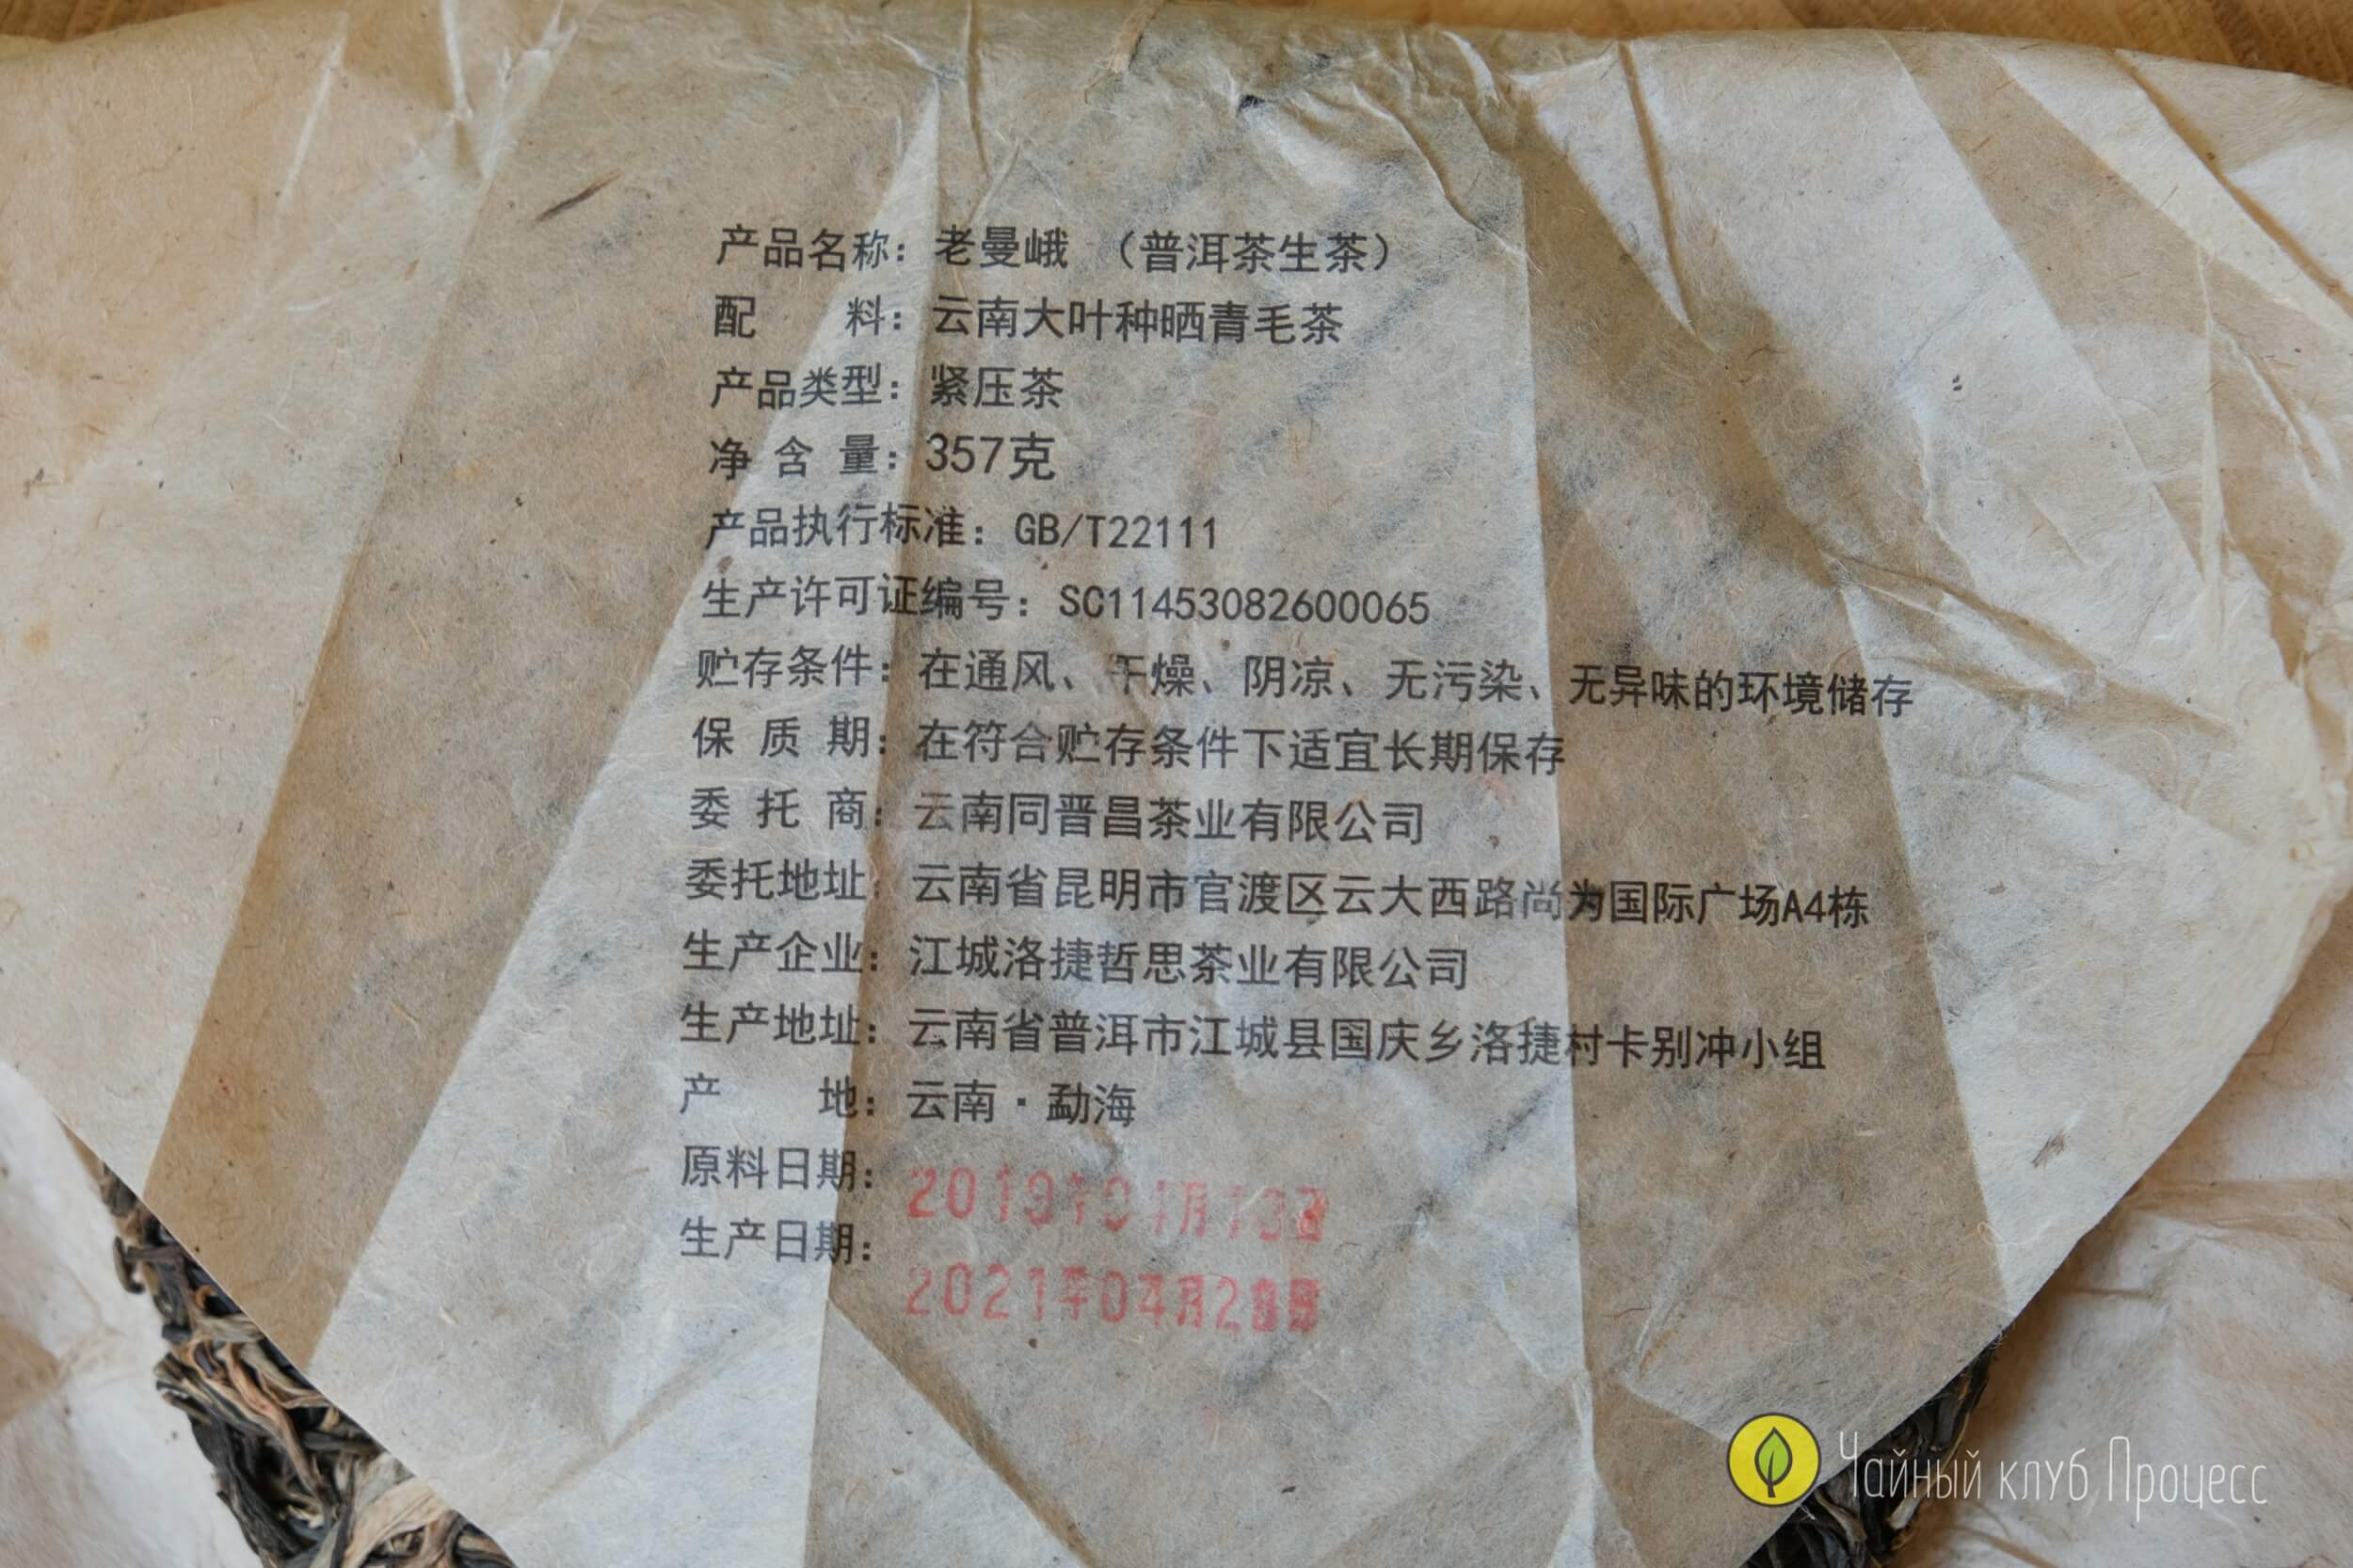 产品名称：老曼峨 （普洱茶生茶）
配料：云南大叶种晒青毛茶
产品类型：紧压茶
净含量：357克
产品执行标准：GB/T22111
生产许可证编号：SC11453082600065
贮存条件：在通风、干燥、阴凉、无污染、无异味的环境储存
保质期：在符合贮存条件下适宜长期保存
委托商：云南同晋昌茶业有限公司
委托地址：云南省昆明市官渡区云大西路尚为国际广场A4栋
生产企业：江城洛捷哲思茶业有限公司
生产地址：云南省普洱市江城县国庆乡洛捷村卡别冲小组
产地：云南·勐海
原料日期：
生产日期：2021年04月28日
Чайный клуб Процесс